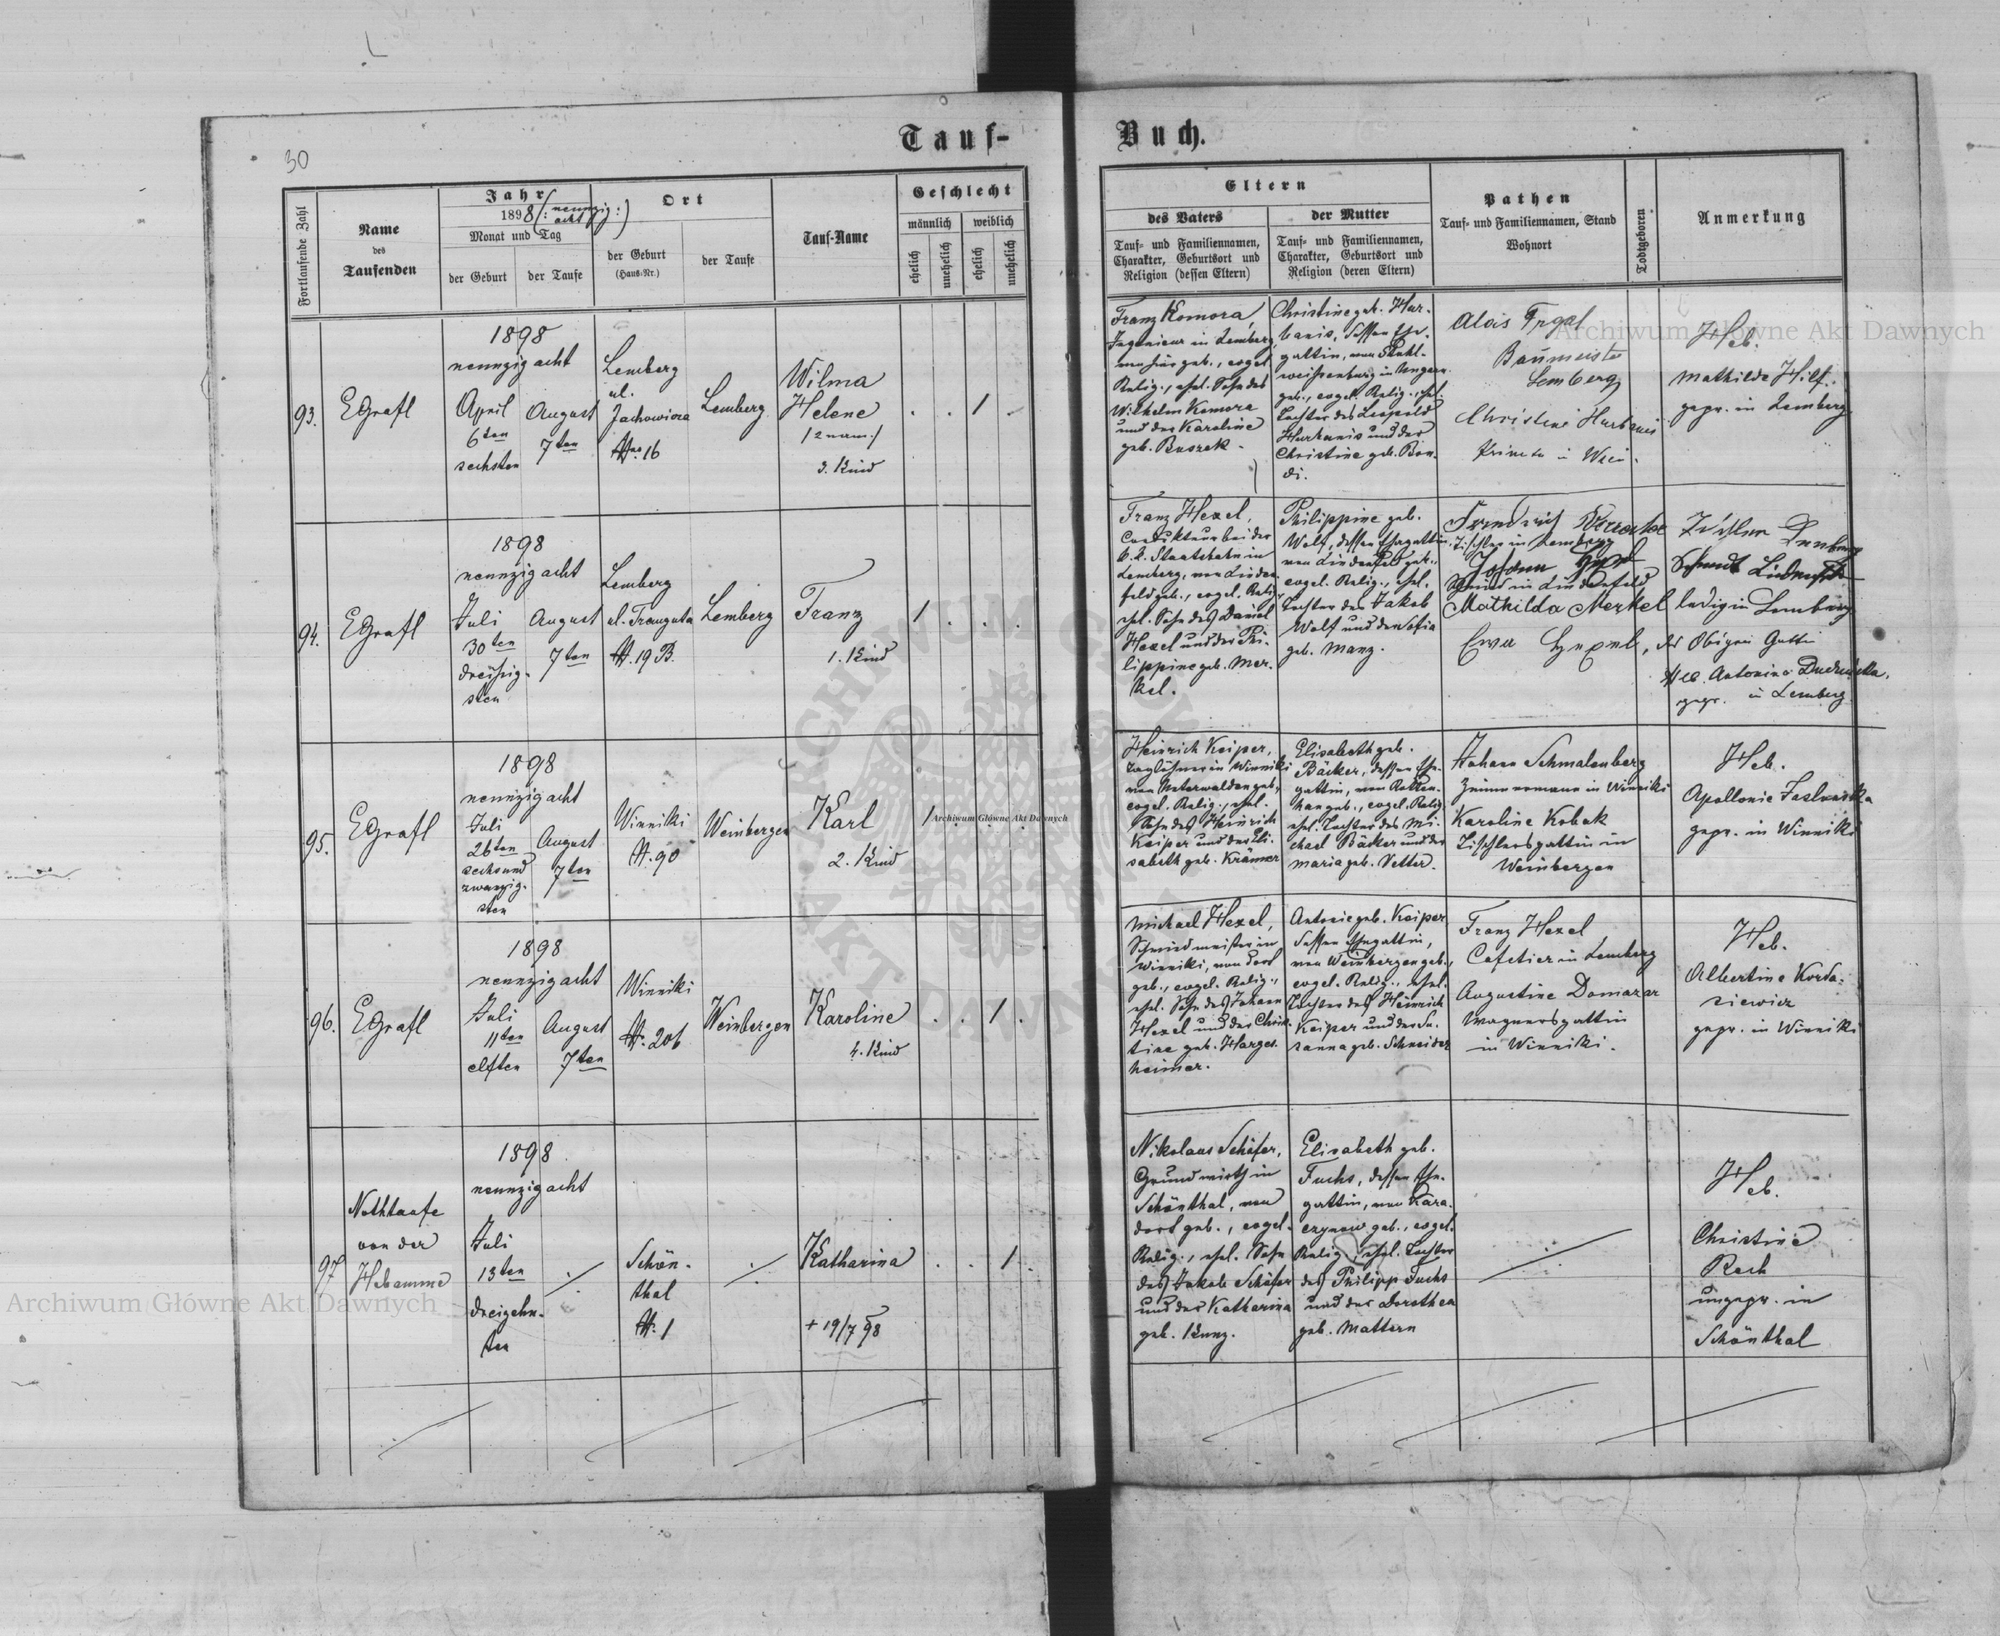 30
Tauf-
Buch.
Fortlaufende Zahl
Name
des
Taufenden
Jahr
1898 (: neunzig :)
acht
Monat und Tag
der Geburt
der Taufe
Ort
der Geburt
(Haus-Nr.)
der Taufe
Tauf-Name
Geschlecht
männlich
weiblich
ehelich
unehelich
ehelich
unehelich
Eltern
des Vaters
Tauf- und Familiennamen,
Charakter, Geburtsort und
Religion (dessen Eltern)
der Mutter
Tauf- und Familiennamen,
Charakter, Geburtsort und
Religion (deren Eltern)
Pathen
Tauf- und Familiennamen, Stand
Wohnort
Todtgeboren
Anmerkung
93.
EGrafl
1898
neunzig acht
April
6ten
sechsten
August
7ten
Lemberg
ul.
Jachowicza
№ 16
Lemberg
Wilma
Helene
/2 nam./
3. Kind
1
Franz Komora,
Ingenieur in Lemberg,
geb., evgel.
Relig., ehel. Sohn des
Wilhelm Komora
und der Karoline
geb. Buszek.
Christine geb. Hur-
banis, dessen Ehe-
gattin, von Stuhl-
weissenburg in Ungarn
geb., evgel. Relig., ehel.
Tochter des Leopold
Hurbanis und der
Christine geb. Bon-
di.
Alois
Baumeister
Lemberg
Christine Hurbanis
Private in Wien.
Heb.
Mathilde Hilf.
gepr. in Lemberg
94.
EGrafl
1898
neunzig acht
Juli
30ten
dreißig-
sten
August
7ten
Lemberg
ul. Franguta
№ 19 B.
Lemberg
Franz
1. Kind
1
Franz Hexel,
Condukteur bei der
k.k. Staatsbahn in
Lemberg, von Linden-
feld geb., evgel. Relig.,
ehel. Sohn des Daniel
Hexel und der Phi-
lippine geb. Mer-
kel.
Philippine geb.
Wolf, dessen Ehegattin,
von Lindenfeld geb.,
evgel. Relig., ehel.
Tochter des Jakob
Wolf und der Sofia
geb. Manz.
Tischler in Lemberg
in Lindenfeld
Mathilda Merkel ledig in Lemberg
Ewa Hexel, des Obigen Gattin
Heb. Antonina
gepr. in Lemberg
95.
EGrafl
1898
neunzig acht
Juli
26ten
sechsund
zwanzig-
sten
August
7ten
Winniki
№ 90
Weinbergen
Karl
2. Kind
1
Heinrich Keiper,
Taglöhner in Winniki
von Unterwalden geb.,
evgel. Relig., ehel.
Sohn des Heinrich
Keiper und der Eli-
sabeth geb. Krämer
Elisabeth geb.
Bäcker, dessen Ehe-
gattin, von Rotten-
han geb., evgel. Relig.,
ehel. Tochter des Mi-
chael Bäcker und der
Maria geb. Vetter.
Johann Schmalenberg
Zimmermann in Winniki
Karoline Kobak
Tischlersgattin in
Weinbergen
Heb.
Apollonie
gepr. in Winniki
96.
EGrafl
1898
neunzig acht
Juli
11ten
elften
August
7ten
Winniki
№ 206
Weinbergen
Karoline
4. Kind
1
Michael Hexel,
Schmiedmeister in
Winniki, von dort
geb., evgel. Relig.,
ehel. Sohn des Johann
Hexel und der Chris-
tine geb. Harges-
heimer.
Antonie geb. Keiper,
dessen Ehegattin,
von Weinbergen geb.,
evgel. Relig., ehel.
Tochter des Heinrich
Keiper und der Su-
sanna geb. Schneider
Franz Hexel
Cafetier in Lemberg
Augustine Domazar
Wagnersgattin
in Winniki.
Heb.
Albertine Korda-
siewicz
gepr. in Winniki
97
Nothtaufe
von der
Hebamme
1898
neunzig acht
Juli
13ten
dreizehn-
ten
Schön-
thal
№ 1
Katharina
+ 19/7 98
1
Nikolaus Schäfer,
Grundwirth in
Schönthal, von
dort geb., evgel.
Relig., ehel. Sohn
des Jakob Schäfer
und der Katharina
geb. Kunz.
Elisabeth geb.
Fuchs, dessen Ehe-
gattin, von Kara-
czynow geb., evgel.
Relig., ehel. Tochter
des Philipp Fuchs
und der Dorothea
geb. Mattern
Heb.
Christine
Rech
ungepr. in
Schönthal
Archiwum Główne Akt Dawnych
Archiwum Główne Akt Dawnych
Archiwum Główne Akt Dawnych